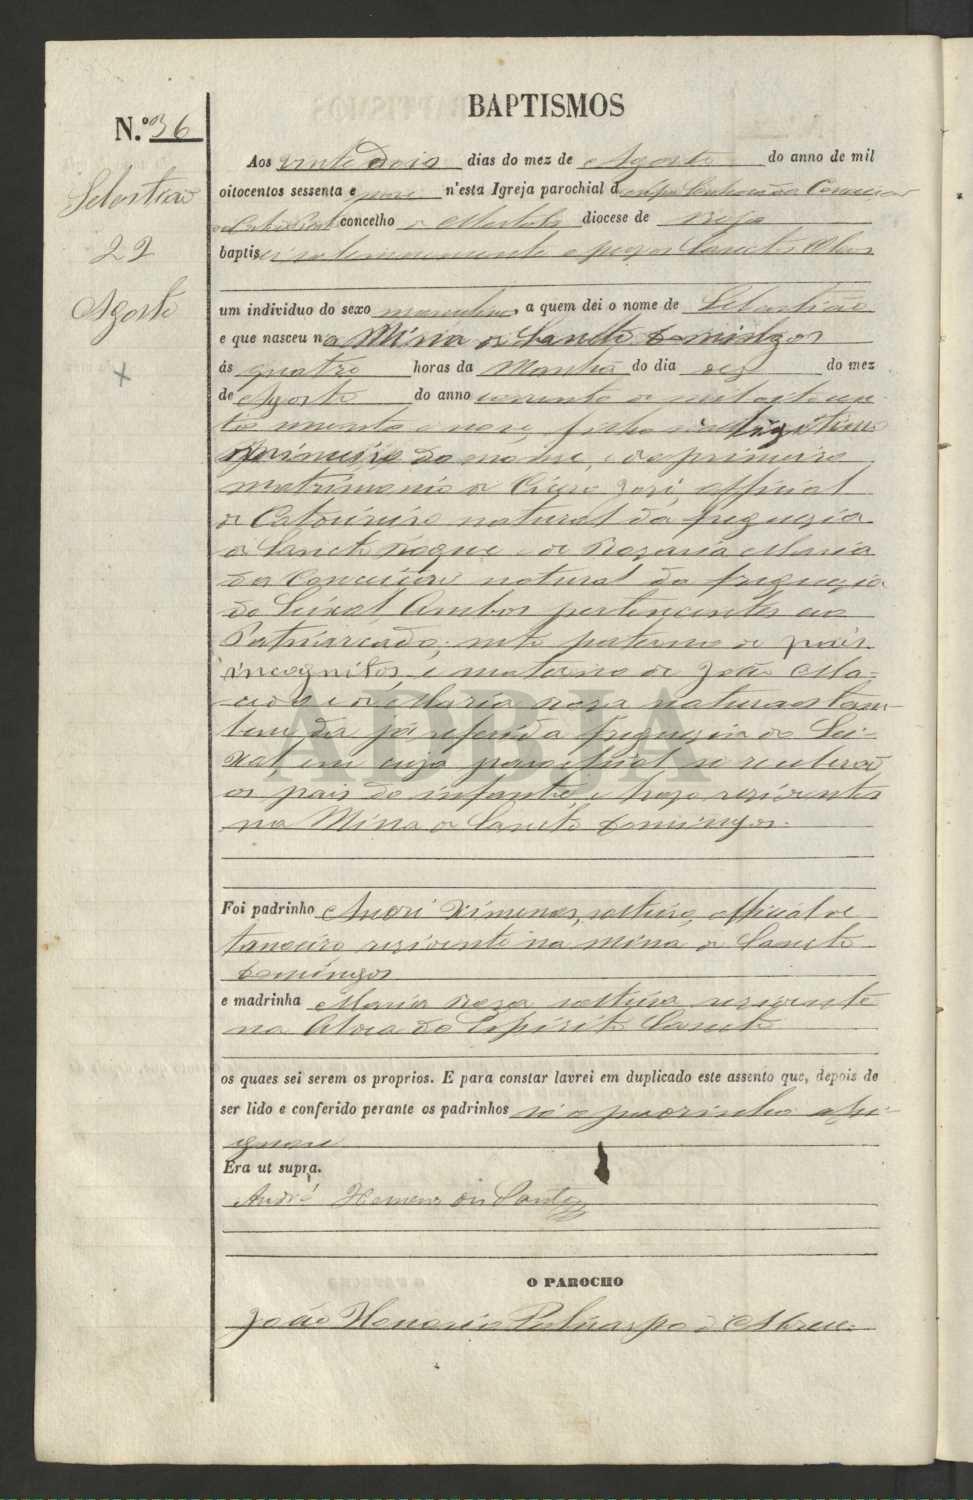 BAPTISMOS
N.º 36
Sebastião
22
Agosto
Aos vinte dois dias do mez de Agosto do anno de mil
oitocentos sessenta e nove n'esta Igreja parochial de Nossa Senhora da Conceição
concelho de Mertola diocese de Beja
baptisei solemnemente e puz os Sanctos Oleos
um individuo do sexo masculino, a quem dei o nome de Sebastião
e que nasceu na Mina de Sancto Domingos
ás quatro horas da Manhã do dia dez do mez
de Agosto do anno corrente de mil oitocen
tos sessenta e nove, filho legitimo
primeiro do nome, e do primeiro
matrimonio de José, official
de natural da freguezia
de Sancto Roque e de Rozaria Maria
da Conceição natural da freguezia
do Seixal Ambos pertencentes ao
Patriarcado; neto paterno de pais
incognitos, e materno de João Ma=
e de Maria Roza naturaes tam-
bem da já referida freguezia do Sei-
xal, em cuja parochial se receberão
os pais do infante, e hoje rezidentes
na Mina de Sancto Domingos.
Foi padrinho André Ximenes, solteiro, official de
tanoeiro rezidente na Mina de Sancto
Domingos
e madrinha Maria Roza solteira rezidente
na Aldea do Espirito Sancto
os quaes sei serem os proprios. E para constar lavrei em duplicado este assento que, depois de
ser lido e conferido perante os padrinhos só o padrinho assi-
gnou
Era ut supra.
André dos Santos
O PAROCHO
João Honorio d'Abreu.
ADBJA